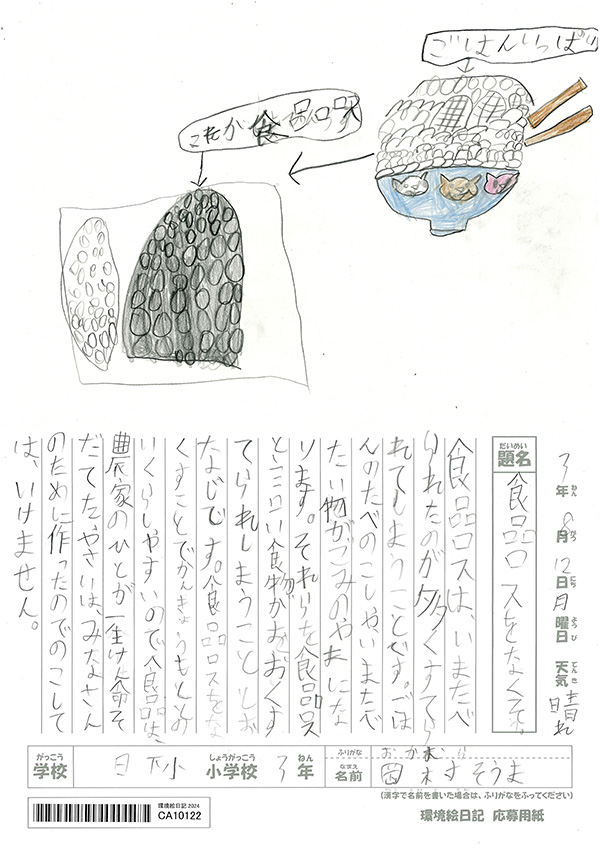 ごはんいっぱい
これが食品ロス
3年 8月 12日 月曜日 天気 晴れ
ねん がつ にち ようび てんき
だいめい
題名
食品ロスをなくそう。
食品ロスは、いまたべ
られたのが多くすてら
れてしまうことです。ごは
んのたべのこしやいまたべ
たい物がごみのやまにな
ります。それらを食品ロス
といい食物がおおくす
てられてしまうこととお
なじです。食品ロスをな
くすことでかんきょうももとめ
いくらしやすいので食品は、
農家のひとが一生けん命そ
だてたやさいは、みなさん
のために作ったのでのこして
は、いけません。
がっこう
学校
しょうがっこう ねん
小学校 3年
ふりがな
おかむら
なまえ
名前
岡村そうま
(漢字で名前を書いた場合は、ふりがなをふってください)
環境絵日記 2024
CA10122
環境絵日記 応募用紙